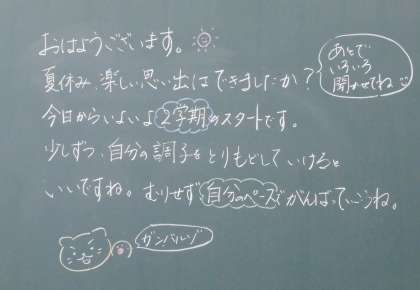 おはようございます。
夏休み、楽しい思い出はできましたか？
あとで
いろいろ
聞かせてね
今日からいよいよ2学期のスタートです。
少しずつ、自分の調子をとりもどしていけると
いいですね。むりせず自分のペースでがんばっていこうね。
ガンバルゾ